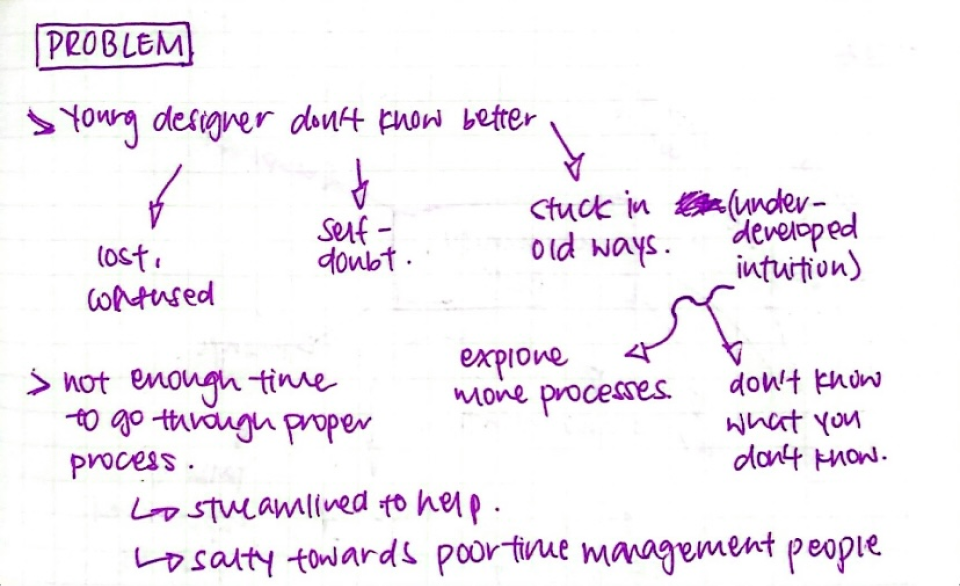 PROBLEM
> Young designer don't know better
lost,
confused
self-
doubt.
stuck in
old ways.
(under-
developed
intuition)
explore
more processes.
don't know
what you
don't know.
> not enough time
to go through proper
process.
↳ streamlined to help.
↳ salty towards poor time management people